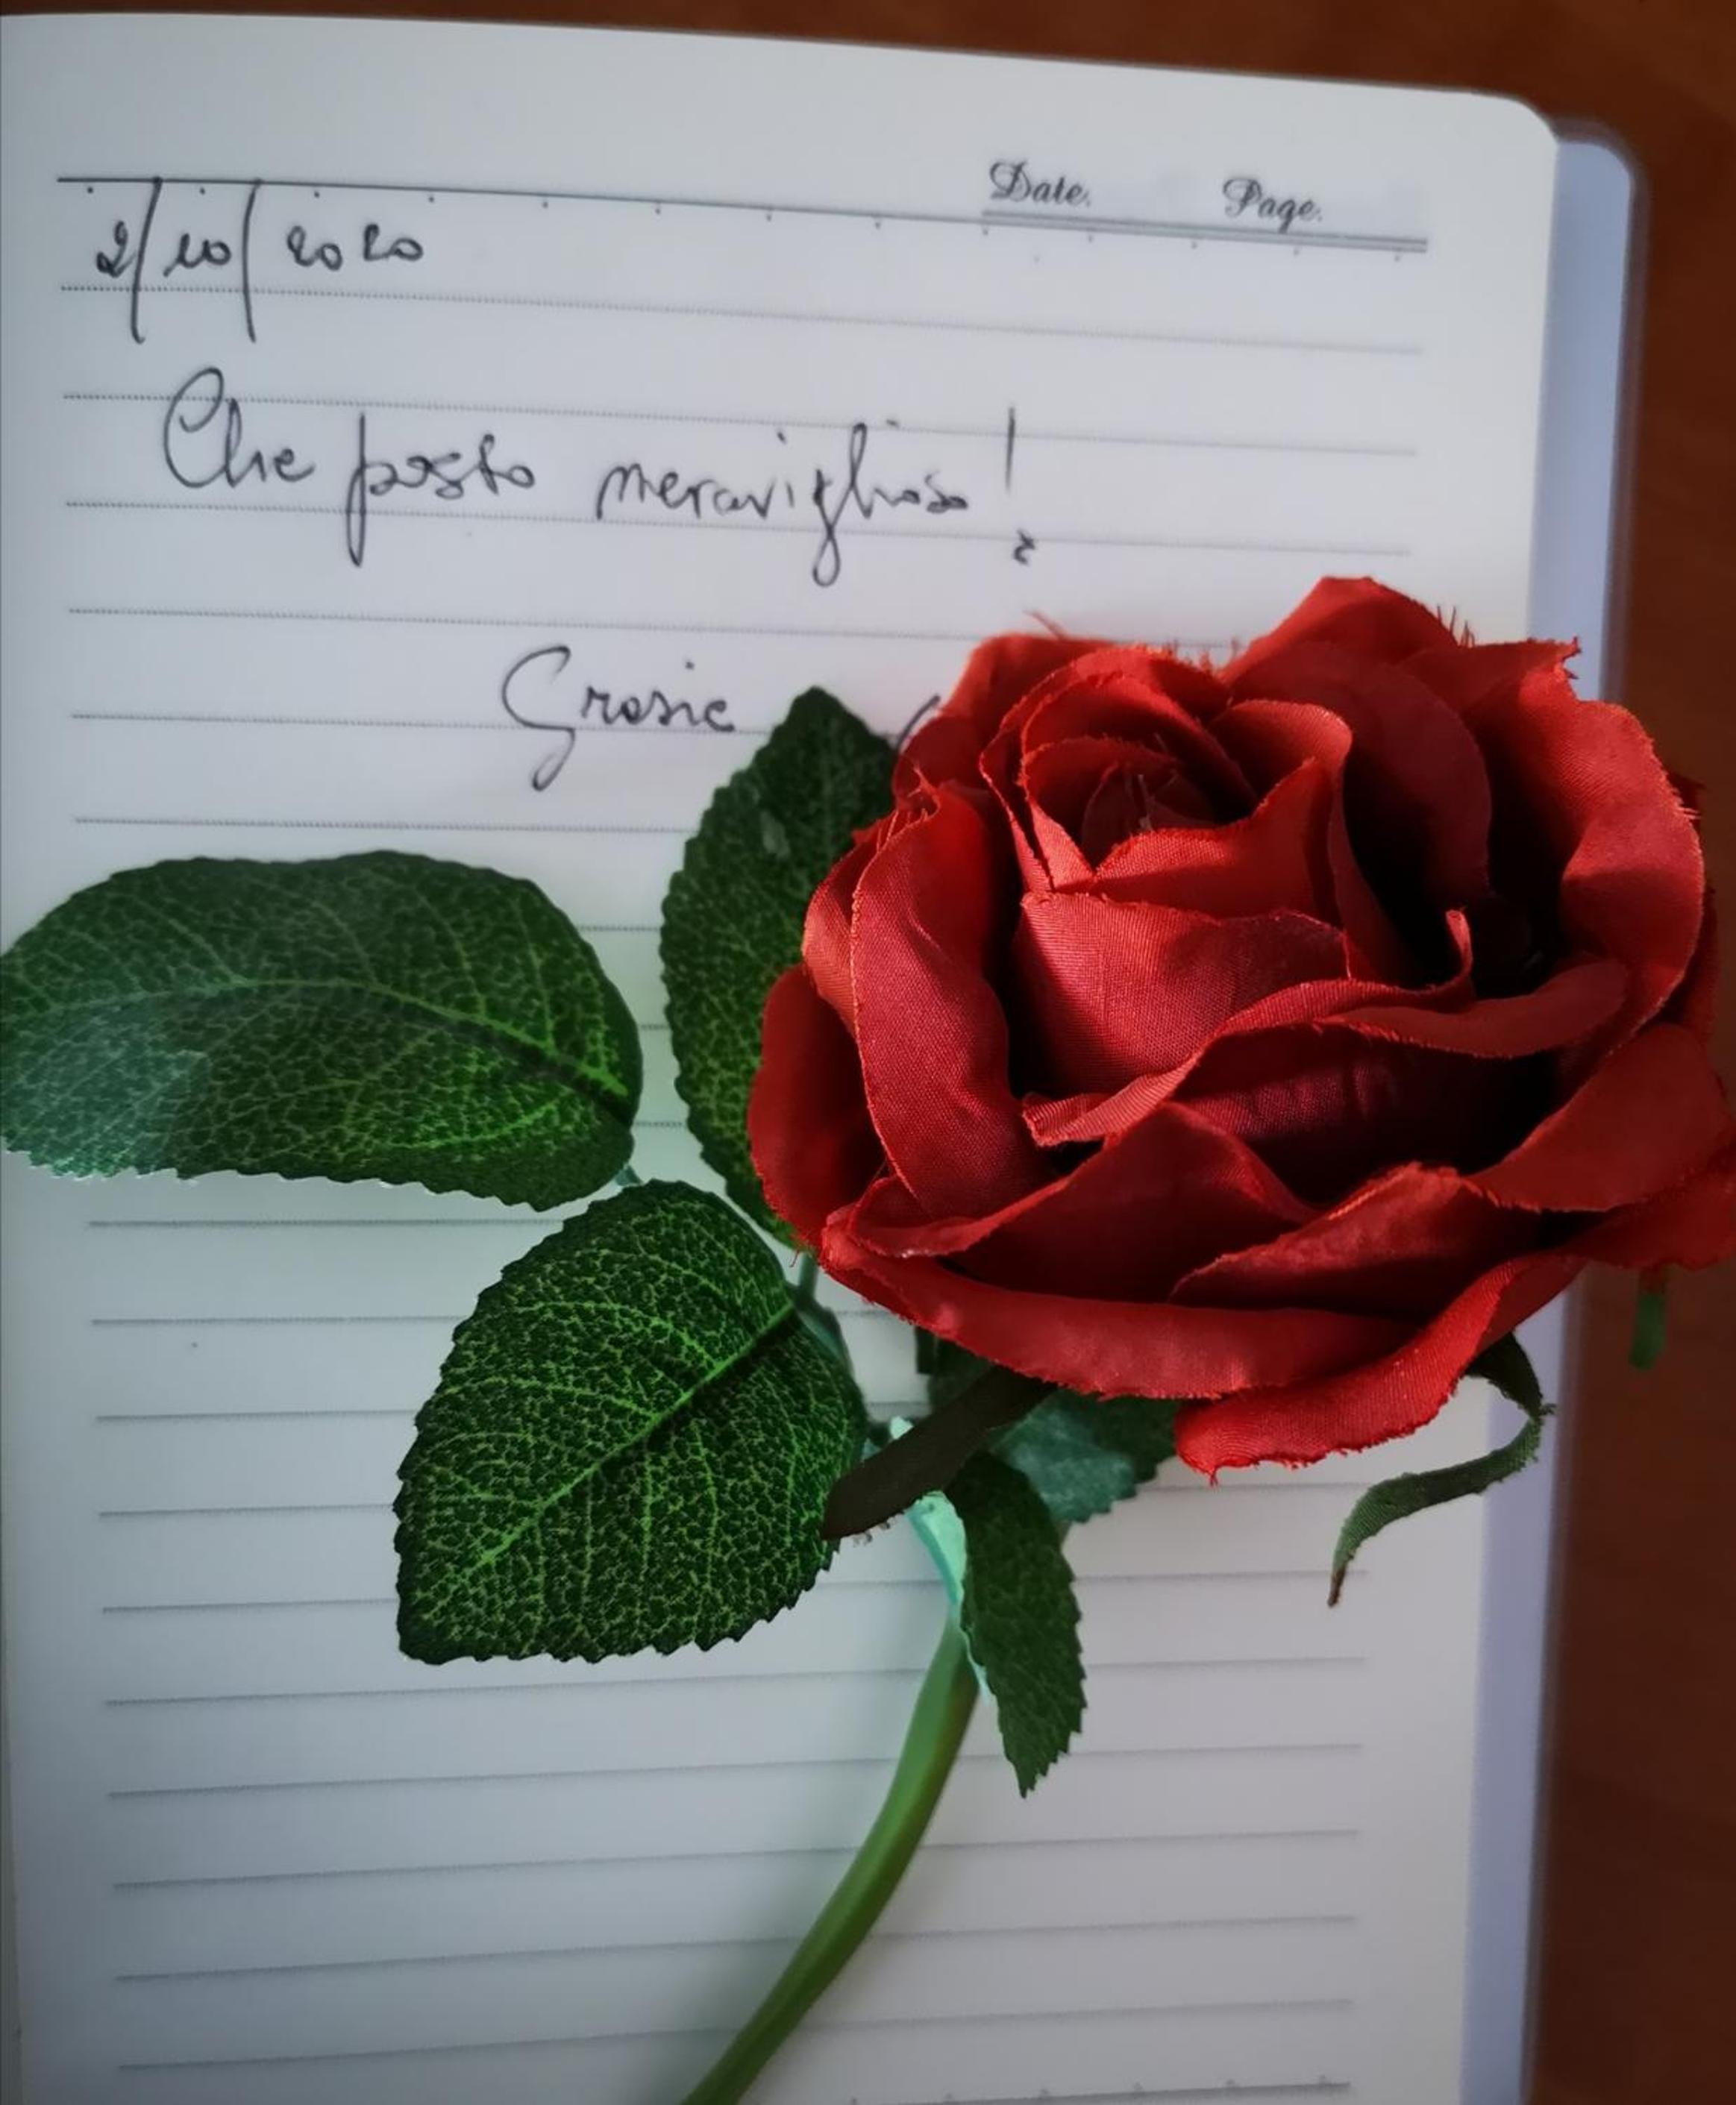 Date. Page.
2/10/2020
Che posto meraviglioso!
Grazie